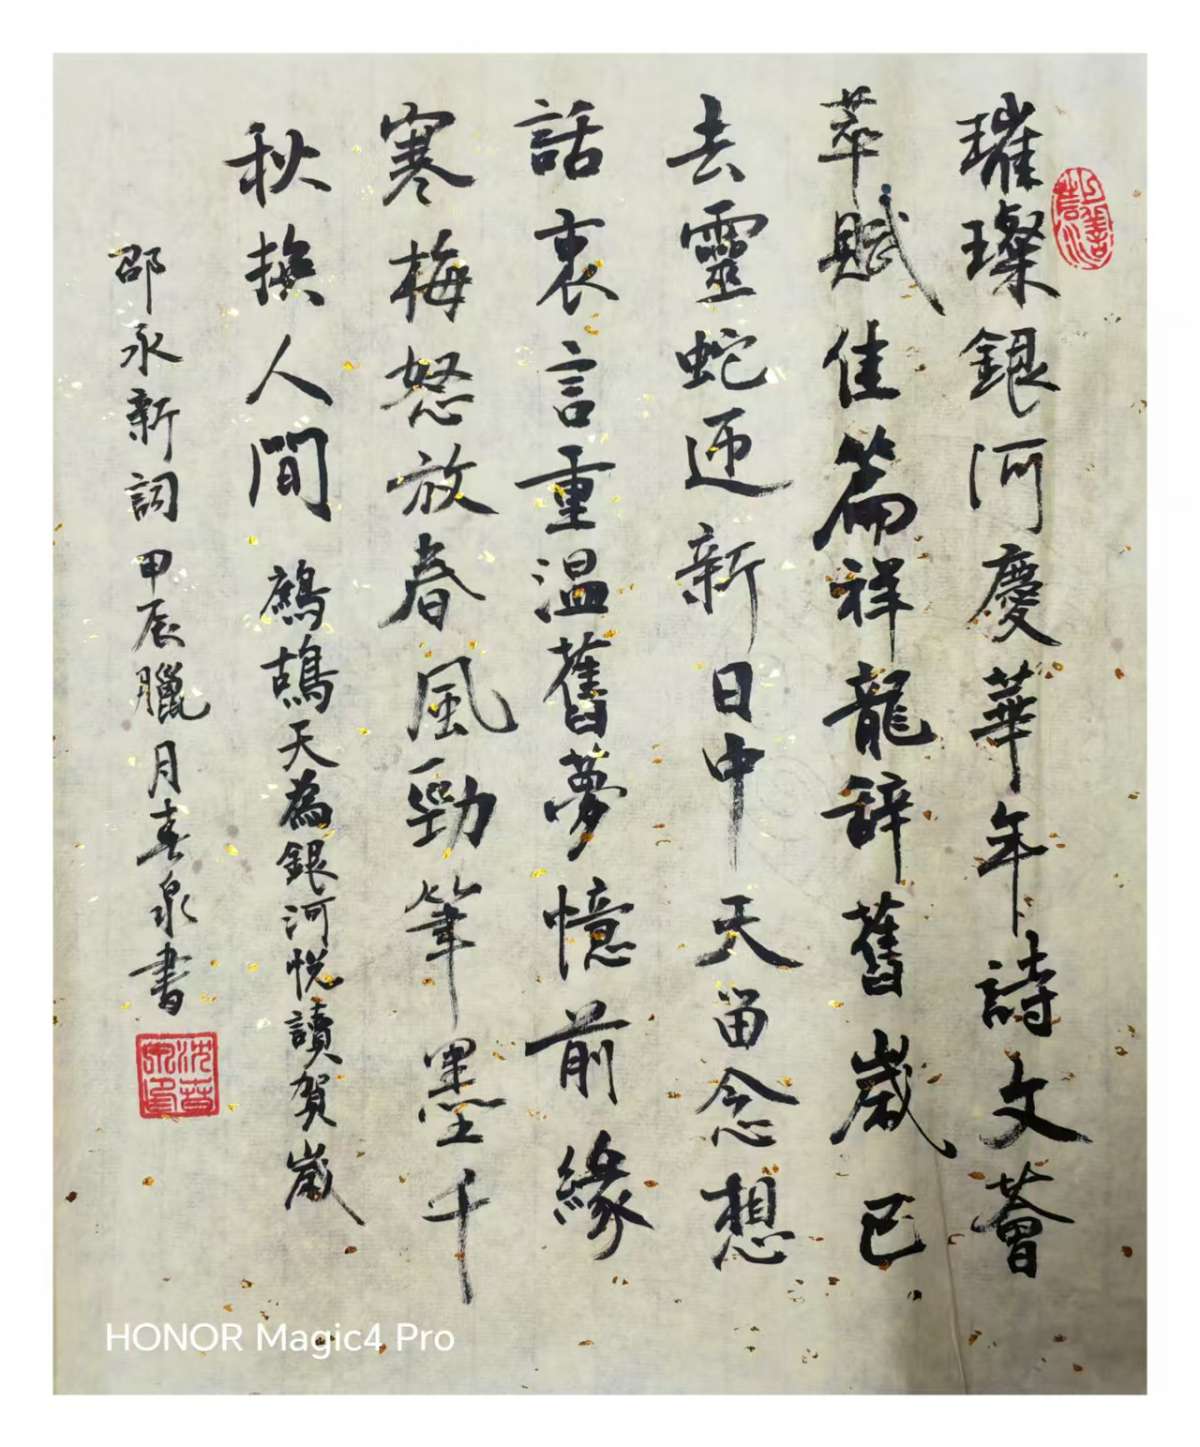 璀璨銀河慶華年詩文薈
萃賦佳篇祥龍辞舊歲已
去靈蛇迎新日中天留念想
話衷言重温舊夢憶前緣
寒梅怒放春風勁筆墨千
秋換人間
鷓鴣天為銀河悦讀賀歲
邵永新詞甲辰臘月春泉書
HONOR Magic4 Pro